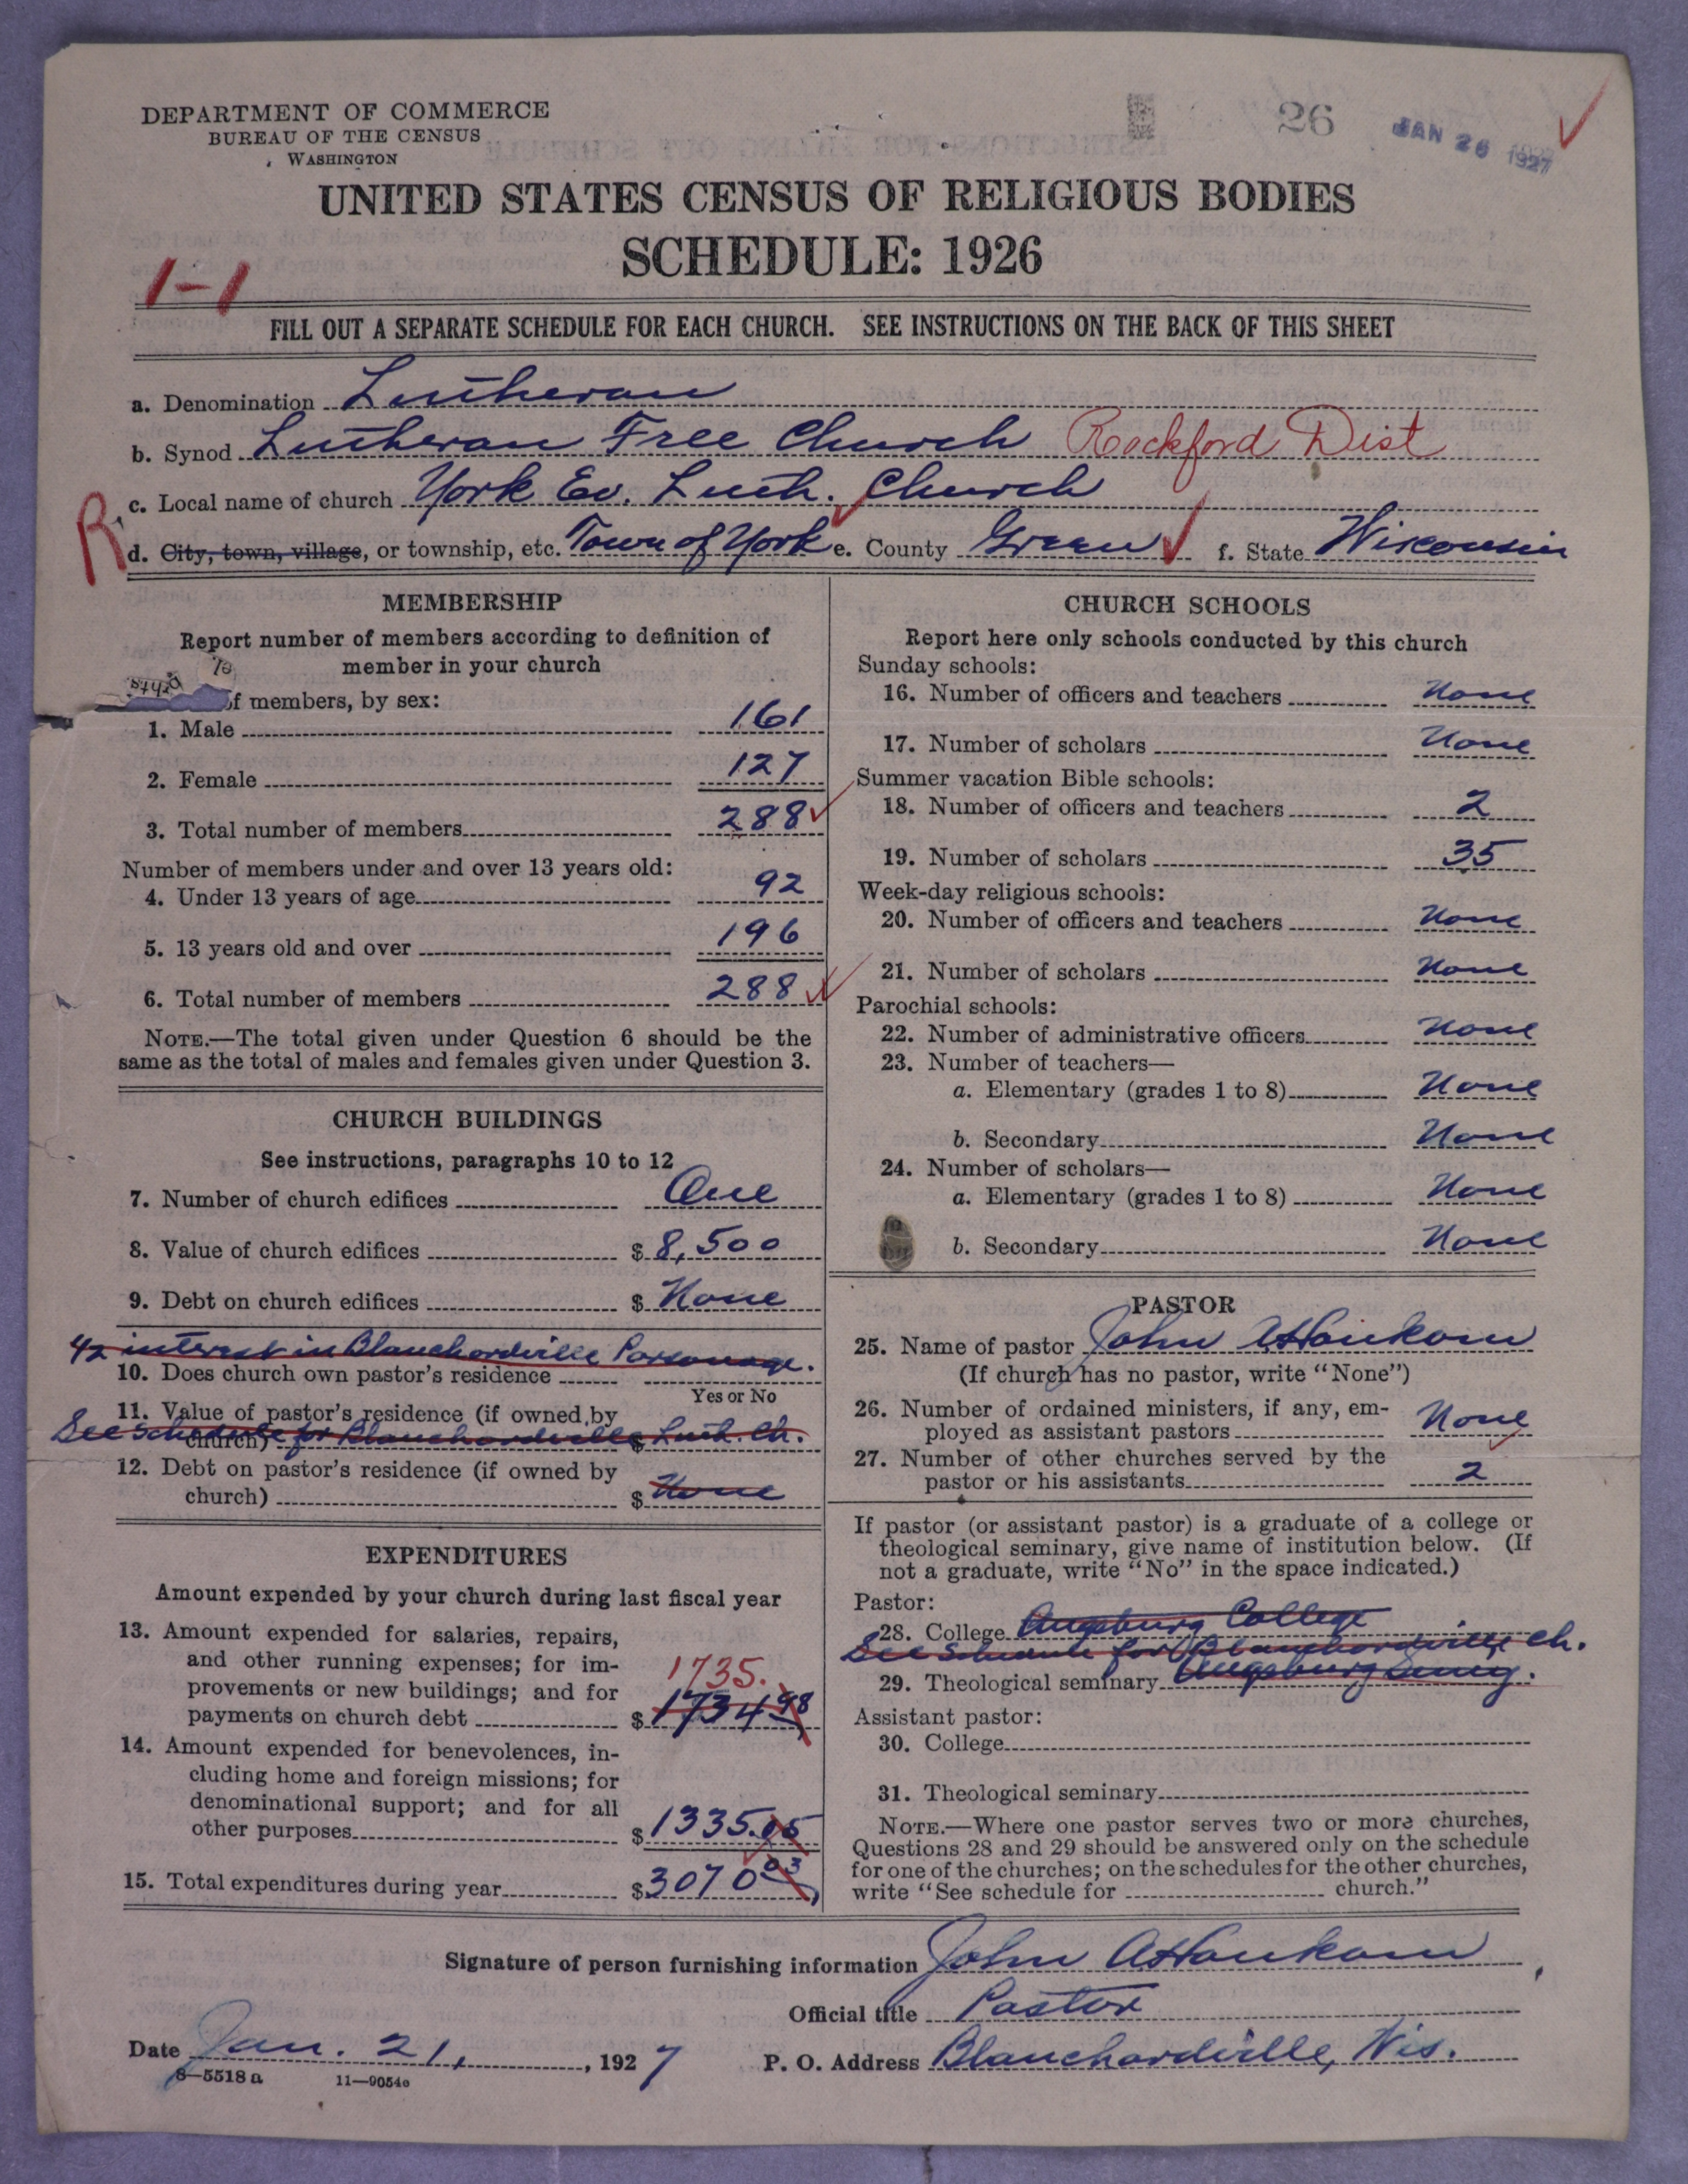 DEPARTMENT OF COMMERCE
BUREAU OF THE CENSUS
WASHINGTON
26
JAN 26 1927
UNITED STATES CENSUS OF RELIGIOUS BODIES
SCHEDULE: 1926
1-1
FILL OUT A SEPARATE SCHEDULE FOR EACH CHURCH. SEE INSTRUCTIONS ON THE BACK OF THIS SHEET
a. Denomination Lutheran
b. Synod Lutheran Free Church Rockford Dist
c. Local name of church York Ev. Luth. Church
R
d. City, town, village, or township, etc. Town of York e. County Green f. State Wisconsin
MEMBERSHIP
Report number of members according to definition of
member in your church
of members, by sex:
1. Male 161
2. Female 127
3. Total number of members 288
Number of members under and over 13 years old:
4. Under 13 years of age 92
5. 13 years old and over 196
6. Total number of members 288
NOTE.—The total given under Question 6 should be the
same as the total of males and females given under Question 3.
CHURCH BUILDINGS
See instructions, paragraphs 10 to 12
7. Number of church edifices One
8. Value of church edifices $ 8,500
9. Debt on church edifices $ None
interest in Blanchardville Parsonage.
10. Does church own pastor's residence
Yes or No
11. Value of pastor's residence (if owned by
church) $
See schedule for Blanchardville Luth. Ch.
12. Debt on pastor's residence (if owned by
church) $ None
EXPENDITURES
Amount expended by your church during last fiscal year
13. Amount expended for salaries, repairs,
and other running expenses; for im-
provements or new buildings; and for
1735.
payments on church debt $ 1734 98
14. Amount expended for benevolences, in-
cluding home and foreign missions; for
denominational support; and for all
other purposes $ 1335.05
15. Total expenditures during year $ 3070 03
CHURCH SCHOOLS
Report here only schools conducted by this church
Sunday schools:
16. Number of officers and teachers None
17. Number of scholars None
Summer vacation Bible schools:
18. Number of officers and teachers 2
19. Number of scholars 35
Week-day religious schools:
20. Number of officers and teachers None
21. Number of scholars None
Parochial schools:
22. Number of administrative officers None
23. Number of teachers—
a. Elementary (grades 1 to 8) None
b. Secondary None
24. Number of scholars—
a. Elementary (grades 1 to 8) None
b. Secondary None
PASTOR
25. Name of pastor John A Houkom
(If church has no pastor, write "None")
26. Number of ordained ministers, if any, em-
ployed as assistant pastors None
27. Number of other churches served by the
pastor or his assistants 2
If pastor (or assistant pastor) is a graduate of a college or
theological seminary, give name of institution below. (If
not a graduate, write "No" in the space indicated.)
Pastor:
28. College Augsburg College
See Schedule for Blanchardville Ch.
29. Theological seminary Augsburg Seminy.
Assistant pastor:
30. College
31. Theological seminary
NOTE.—Where one pastor serves two or more churches,
Questions 28 and 29 should be answered only on the schedule
for one of the churches; on the schedules for the other churches,
write "See schedule for church."
Signature of person furnishing information John A Houkom
Official title Pastor
Date Jan. 21, , 1927
P. O. Address Blanchardville, Wis.
8—5518 a 11—9054e